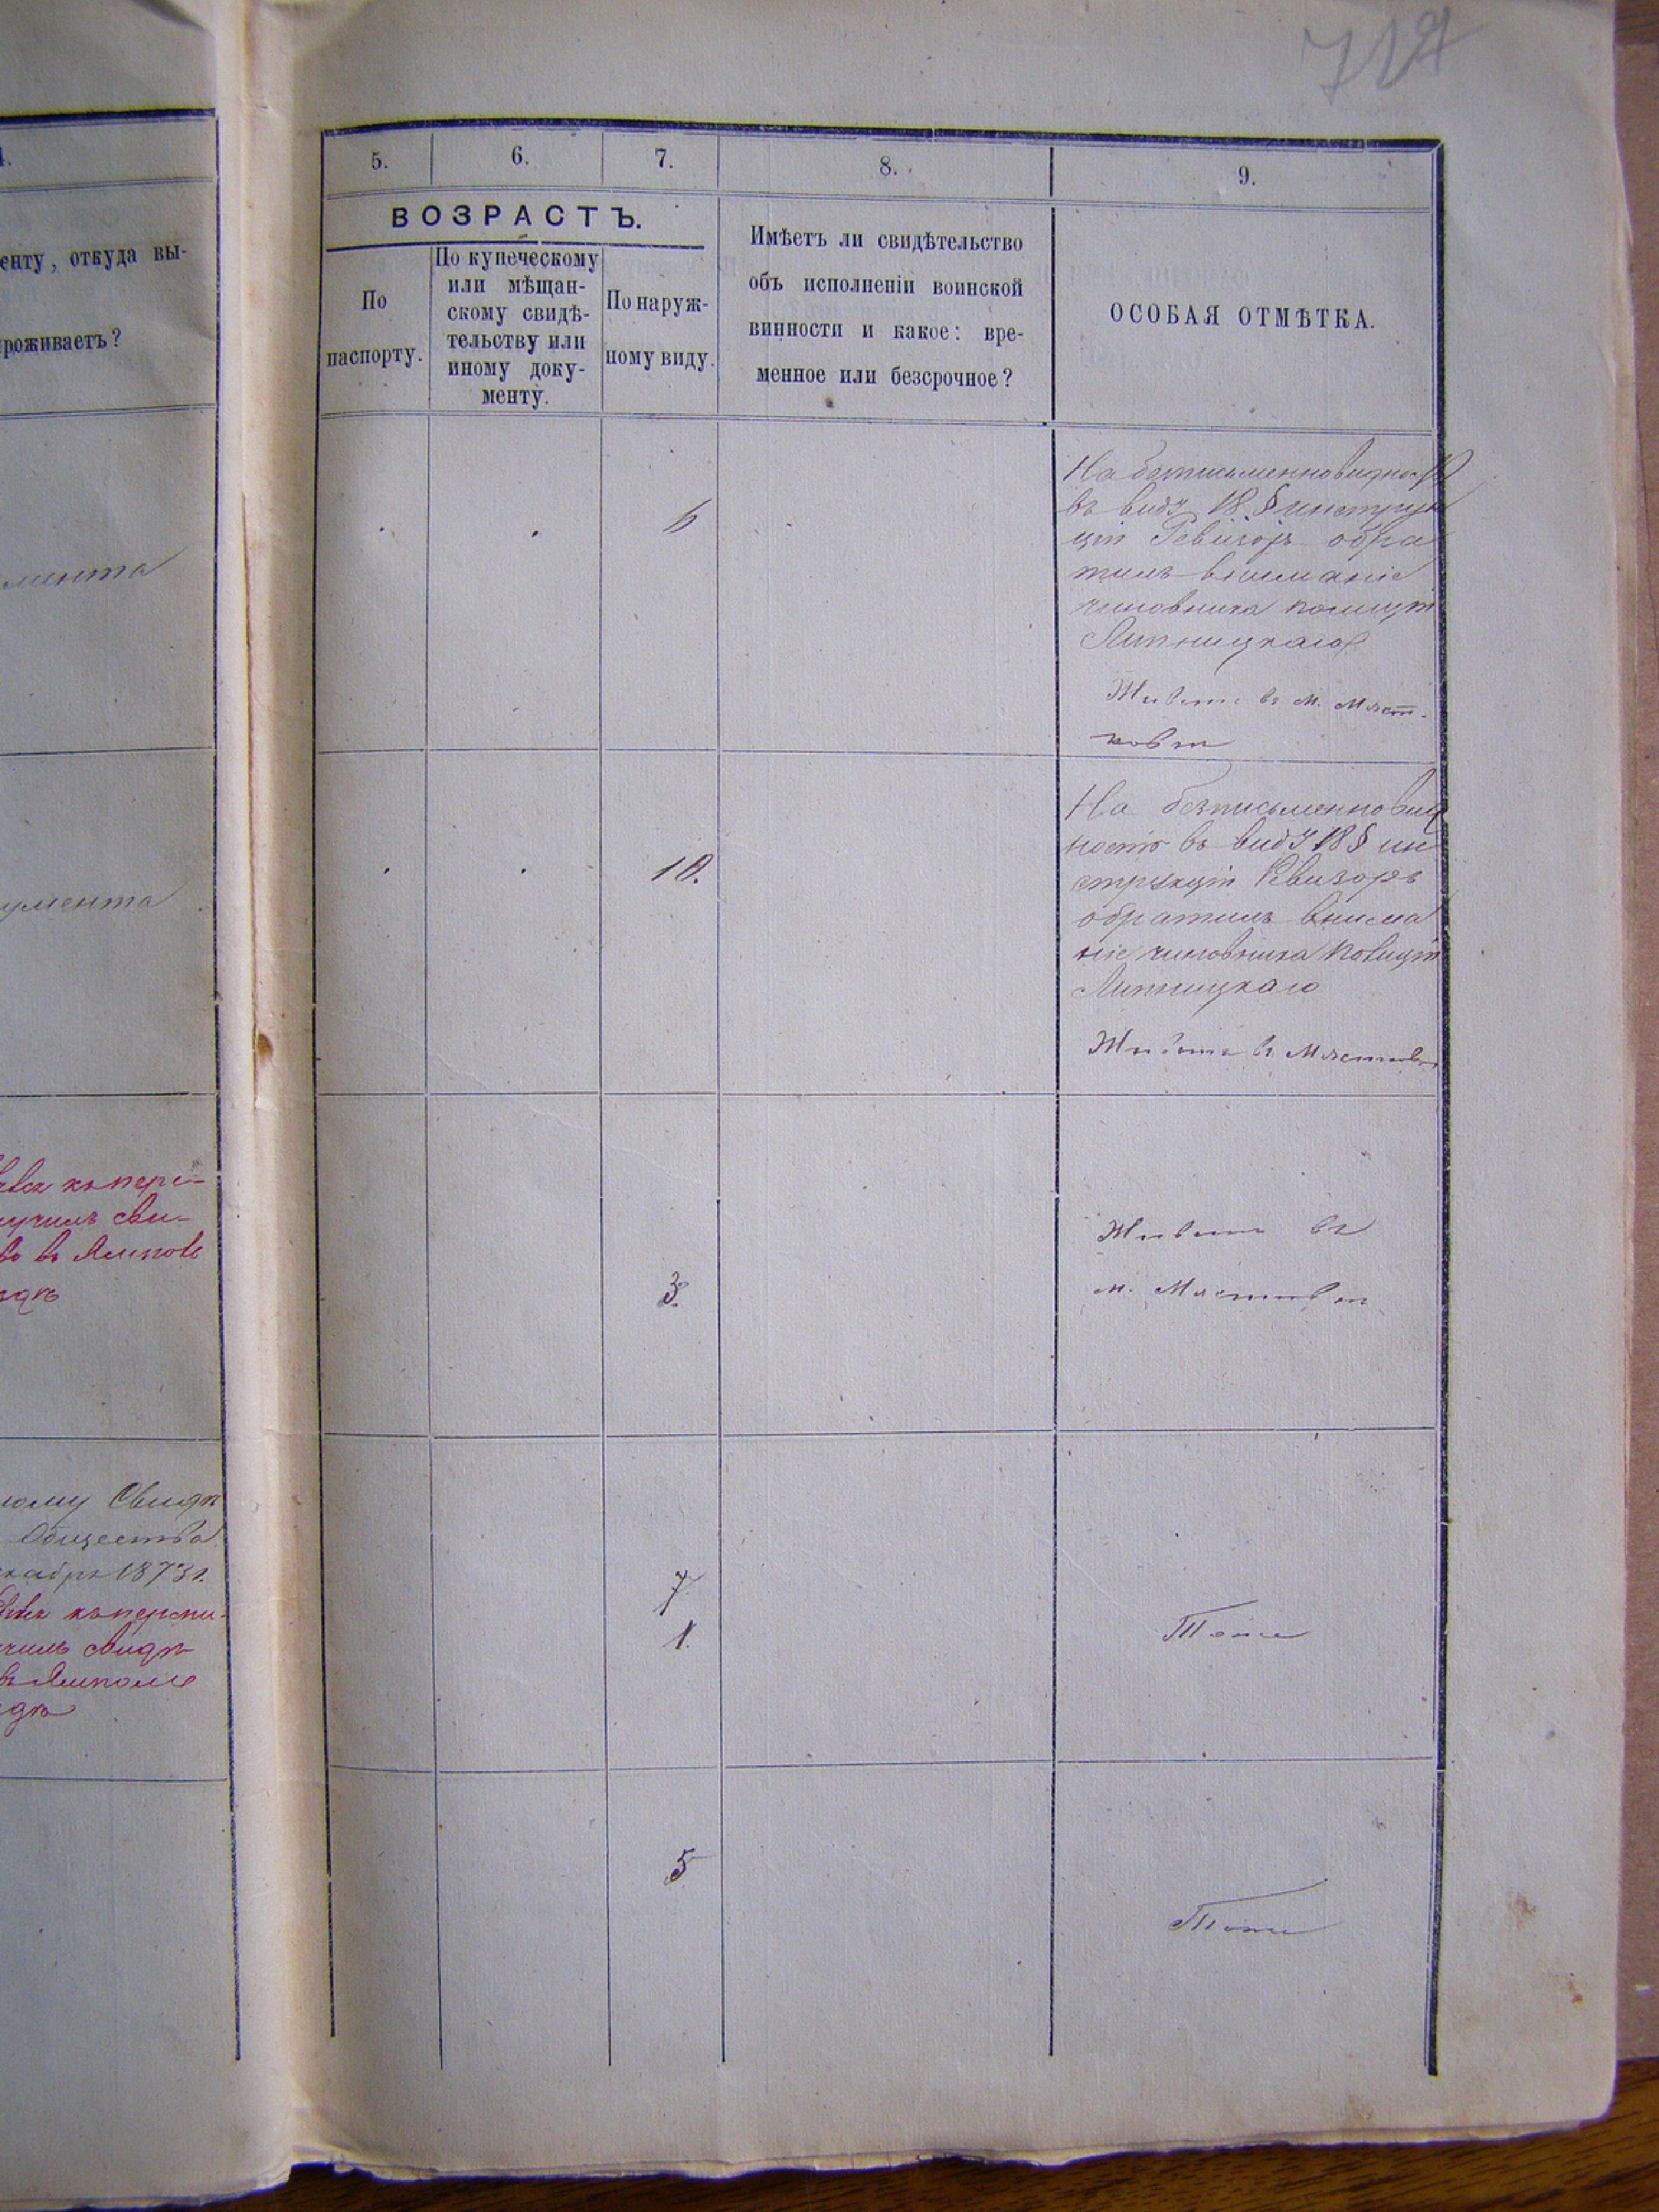 724
4.
енту, откуда вы-
проживаетъ?
мента
умента
къ пере-
лучилъ сви-
во въ Ямполь
ѣздѣ
ному Свидѣ
Общества
кабря 1873 г.
чилъ свидѣ
въ Ямполь
здѣ
5. 6. 7. 8. 9.
ВОЗРАСТЪ.
По
паспорту.
По купеческому
или мѣщан-
скому свидѣ-
тельству или
иному доку-
менту.
По наруж-
ному виду.
Имѣетъ ли свидѣтельство
объ исполненіи воинской
винности и какое: вре-
менное или безсрочное?
ОСОБАЯ ОТМѢТКА.
6
На безписьменновидность
въ виду 18 § инструк
ціи Ревизоръ обра
тилъ вниманіе
чиновника полиціи
Липницкаго
Живетъ въ м. Мяст-
ковкѣ
10.
На безписьменновид
ность въ виду 18 § ин
струкціи Ревизоръ
обратилъ внима
ніе чиновника полиціи
Липницкаго
Живетъ въ Мястковкѣ
3.
Живетъ въ
м. Мястковкѣ
7.
1.
Тоже
5
Тоже